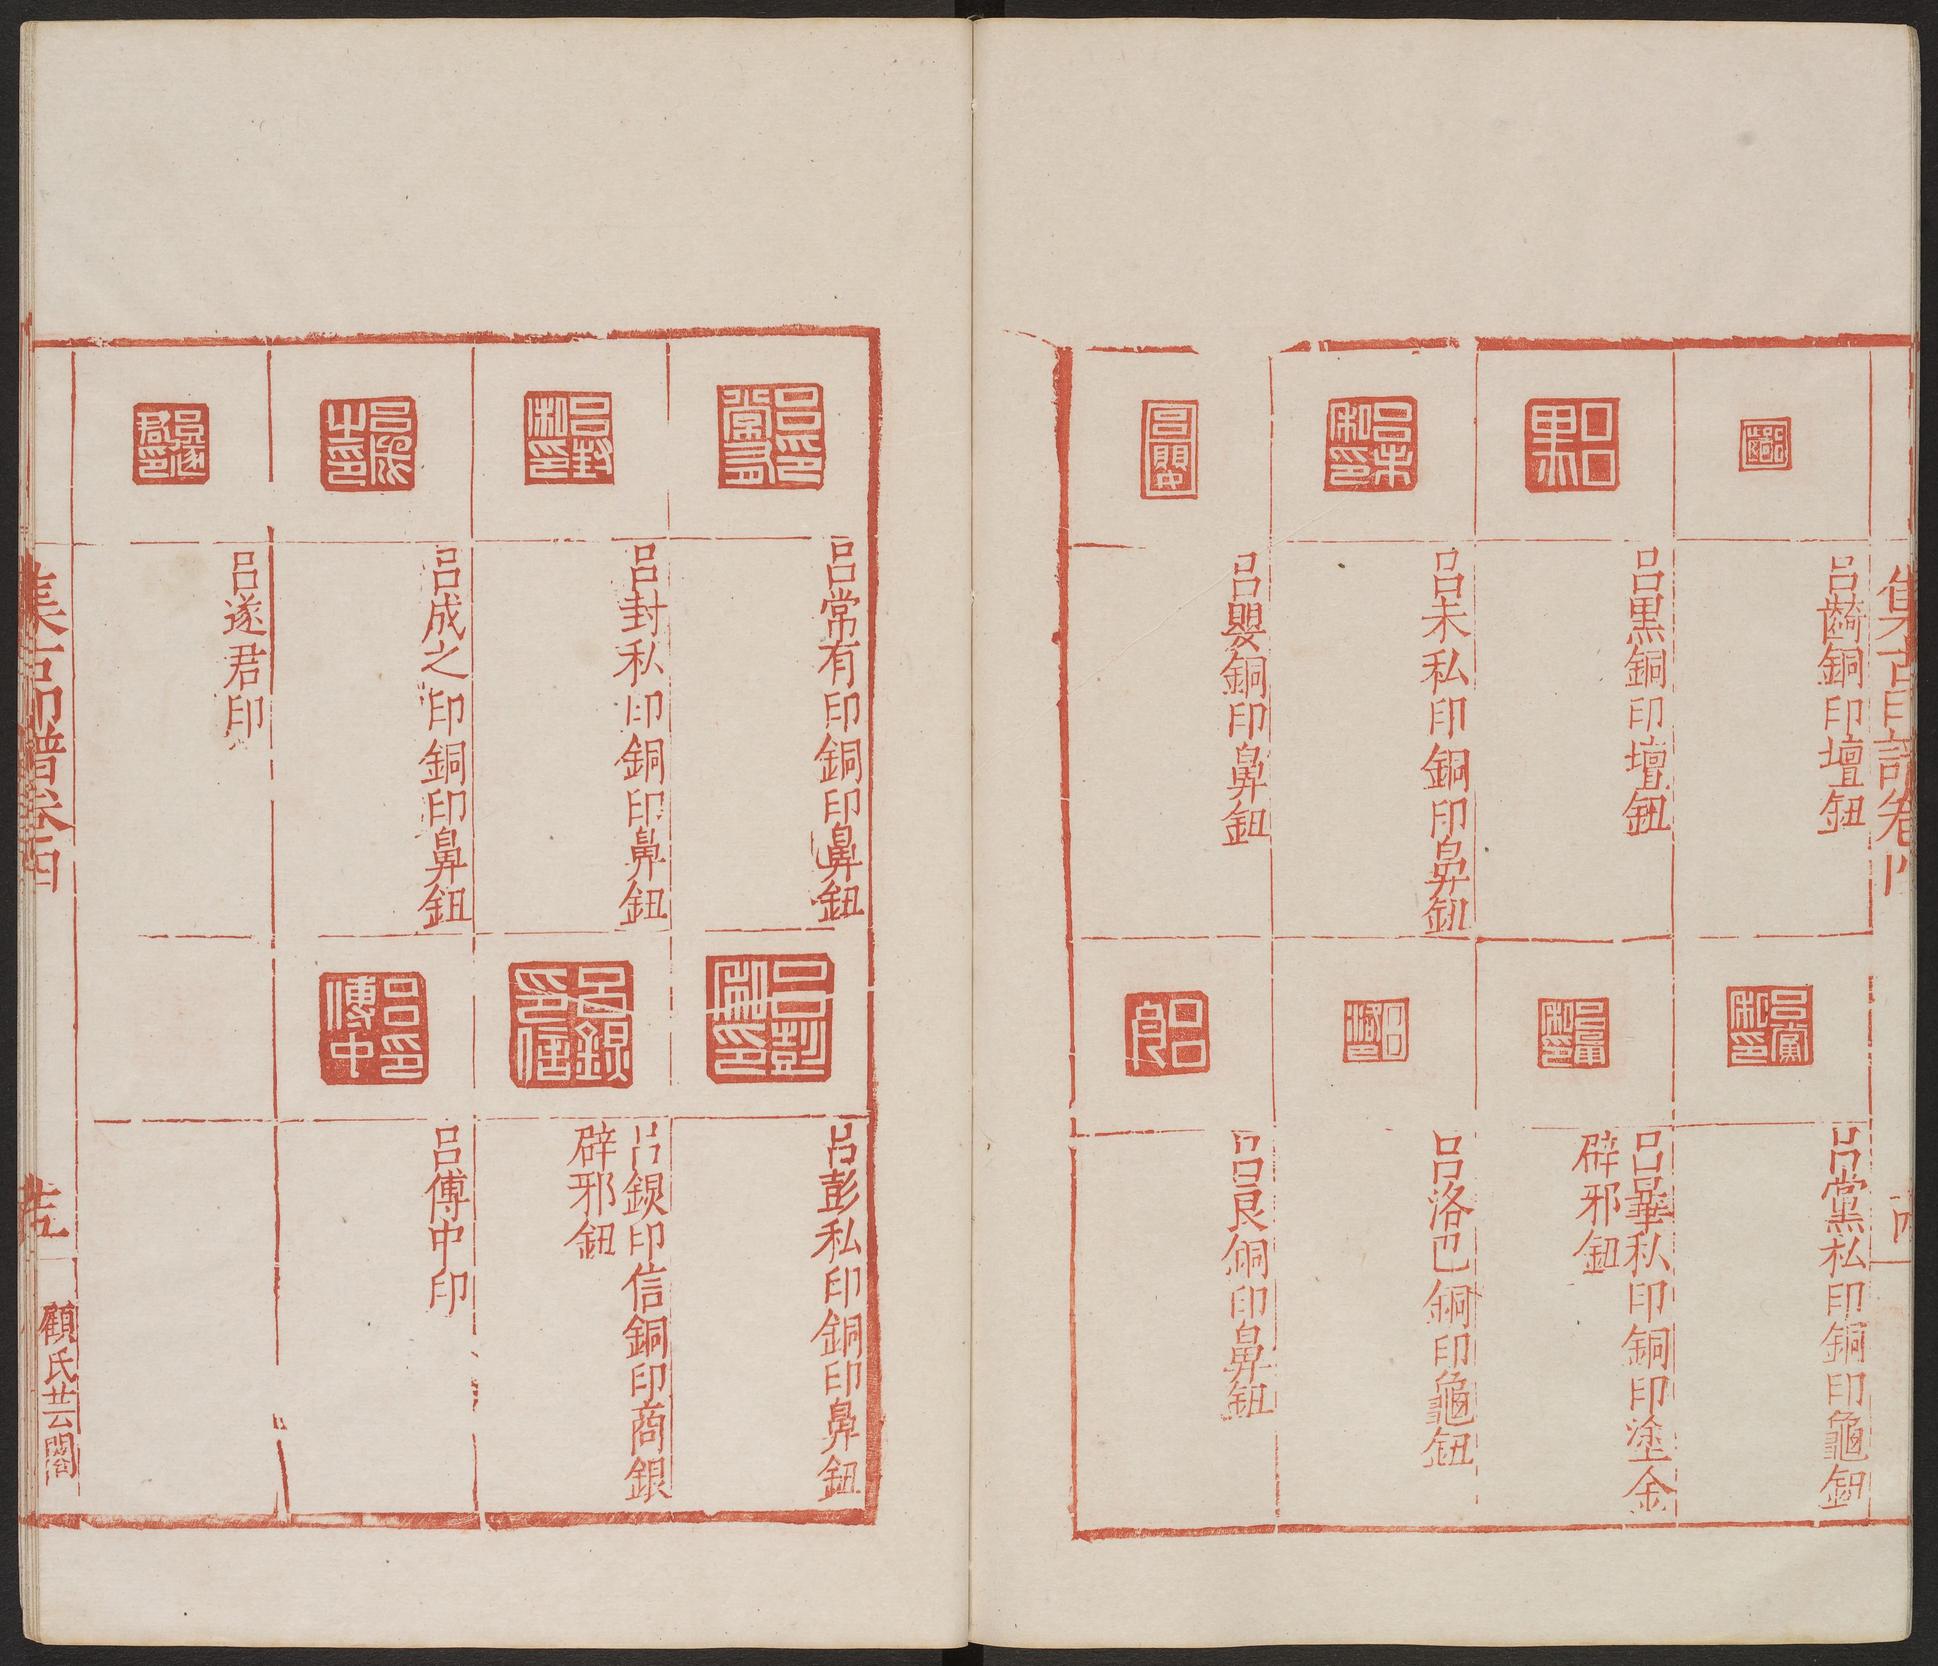 呂齮銅印壇鈕
呂黒銅印壇鈕
呂未私印銅印鼻鈕
呂嬰銅印鼻鈕
呂黨私印銅印龜鈕
呂畢私印銅印塗金
辟邪鈕
呂洛巴銅印龜鈕
呂良銅印鼻鈕
呂常有印銅印鼻鈕
呂封私印銅印鼻鈕
呂成之印銅印鼻鈕
呂遂君印
呂彭私印銅印鼻鈕
呂鋘印信銅印商銀
辟邪鈕
呂傅中印
集古印譜卷四
顧氏芸閣